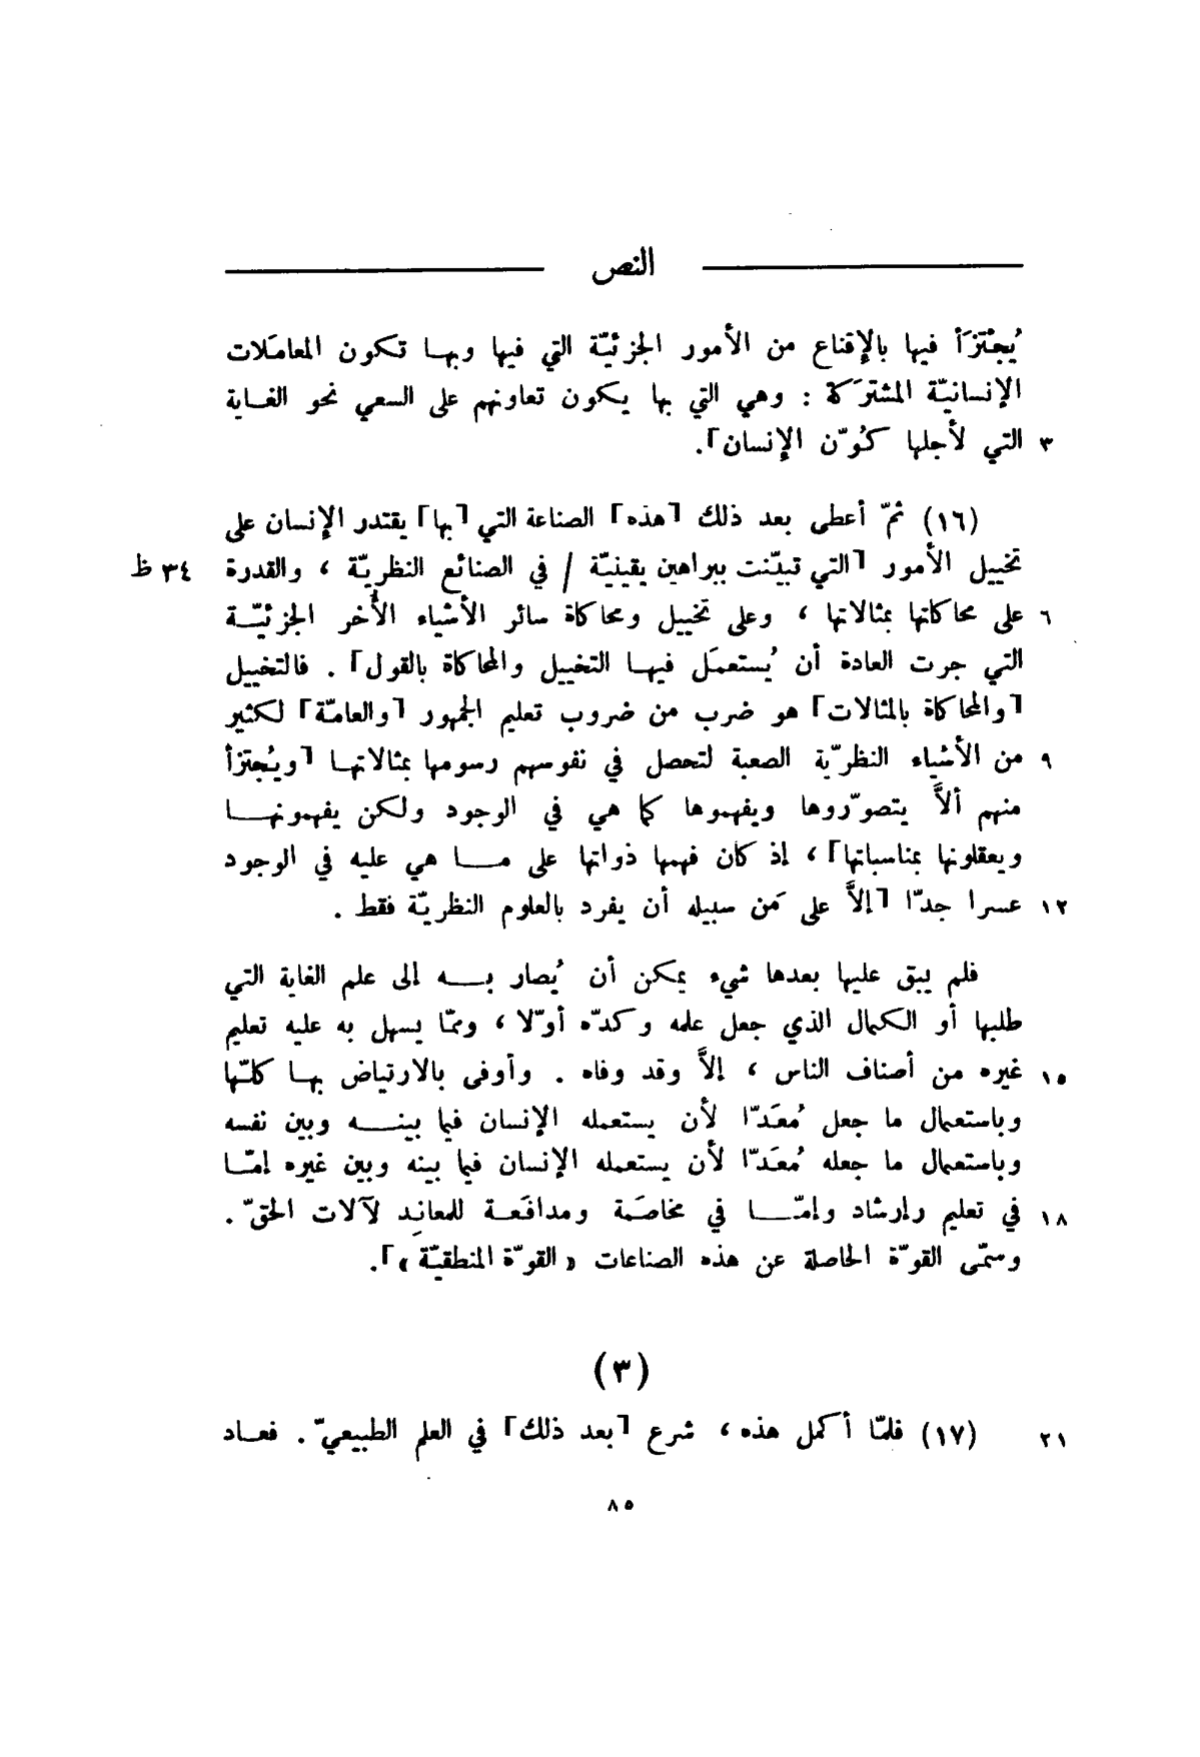 النص
يُجْتَزَأ فيها بالإقناع من الأمور الجزئيّة التي فيها وبها تكون المعاملات
الإنسانيّة المشترَكة : وهي التي بها يكون تعاونهم على السعي نحو الغاية
٣ التي لأجلها كُوّن الإنسان⌉.
(١٦) ثمّ أعطى بعد ذلك ⌈هذه⌉ الصناعة التي ⌈بها⌉ يقتدر الإنسان على
تخييل الأمور ⌈التي تبيّنت ببراهين يقينيّة / في الصنائع النظريّة ، والقدرة ٣٤ ظ
٦ على محاكاتها بمثالاتها ، وعلى تخييل ومحاكاة سائر الأشياء الأُخر الجزئيّة
التي جرت العادة أن يُستعمَل فيها التخييل والمحاكاة بالقول⌉ . فالتخييل
⌈والمحاكاة بالمثالات⌉ هو ضرب من ضروب تعليم الجمهور ⌈والعامّة⌉ لكثير
٩ من الأشياء النظريّة الصعبة لتحصل في نفوسهم رسومها بمثالاتها ⌈ويُجتزأ
منهم ألاَّ يتصوّروها ويفهموها كما هي في الوجود ولكن يفهمونها
ويعقلونها بمناسباتها⌉ ، إذ كان فهمها ذواتها على ما هي عليه في الوجود
١٢ عسرا جدّا ⌈إلاَّ على مَن سبيله أن يفرد بالعلوم النظريّة فقط .
فلم يبق عليها بعدها شيء يمكن أن يُصار به إلى علم الغاية التي
طلبها أو الكمال الذي جعل علمه وكدّه أوّلا ، وممّا يسهل به عليه تعليم
١٥ غيره من أصناف الناس ، إلاَّ وقد وفاه . وأوفى بالارتياض بها كلّها
وباستعمال ما جعل مُعَدّا لأن يستعمله الإنسان فيما بينه وبين نفسه
وباستعمال ما جعله مُعَدّا لأن يستعمله الإنسان فيما بينه وبين غيره إمّا
١٨ في تعليم وإرشاد وإمّا في مخاصَمة ومدافَعة للمعانِد لآلات الحقّ .
وسمّى القوّة الحاصلة عن هذه الصناعات « القوّة المنطقيّة »⌉.
(٣)
٢١ (١٧) فلمّا أكمل هذه ، شرع ⌈بعد ذلك⌉ في العلم الطبيعيّ . فعاد
٨٥